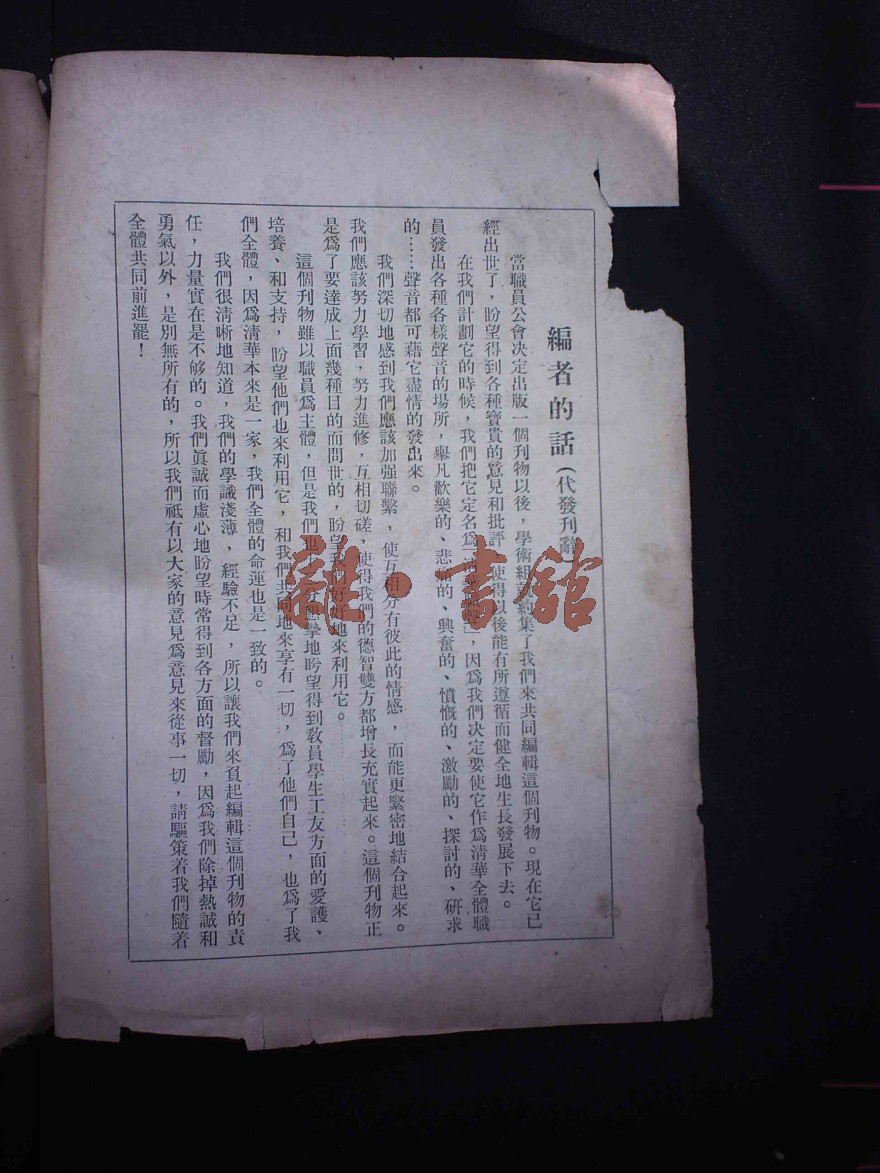 編者的話（代發刊辭）
當職員公會決定出版一個刊物以後，學術組就約集了我們來共同編輯這個刊物。現在它已
經出世了，盼望得到各種寶貴的意見和批評，使得以後能有所遵循而健全地生長發展下去。
在我們計劃它的時候，我們把它定名爲「清華」，因爲我們決定要使它作爲清華全體職
員發出各種各樣聲音的場所，舉凡歡樂的、悲痛的、興奮的、憤慨的、激勵的、探討的、研求
的……聲音都可藉它盡情的發出來。
我們深切地感到我們應該加强聯繫，使互相分有彼此的情感，而能更緊密地結合起來。
我們應該努力學習，努力進修，互相切磋，使得我們的德智雙方都增長充實起來。這個刊物正
是爲了要達成上面幾種目的而問世的，盼望我們好好地來利用它。
這個刊物雖以職員爲主體，但是我們也十分懇摯地盼望得到敎員學生工友方面的愛護、
培養、和支持，盼望他們也來利用它，和我們共同地來享有一切，爲了他們自己，也爲了我
們全體，因爲清華本來是一家，我們全體的命運也是一致的。
我們很清晰地知道，我們的學識淺薄，經驗不足，所以讓我們來負起編輯這個刊物的責
任，力量實在是不够的。我們眞誠而虛心地盼望時常得到各方面的督勵，因爲我們除掉熱誠和
勇氣以外，是別無所有的，所以我們祇有以大家的意見爲意見來從事一切，請驅策着我們隨着
全體共同前進罷！
龍·書館